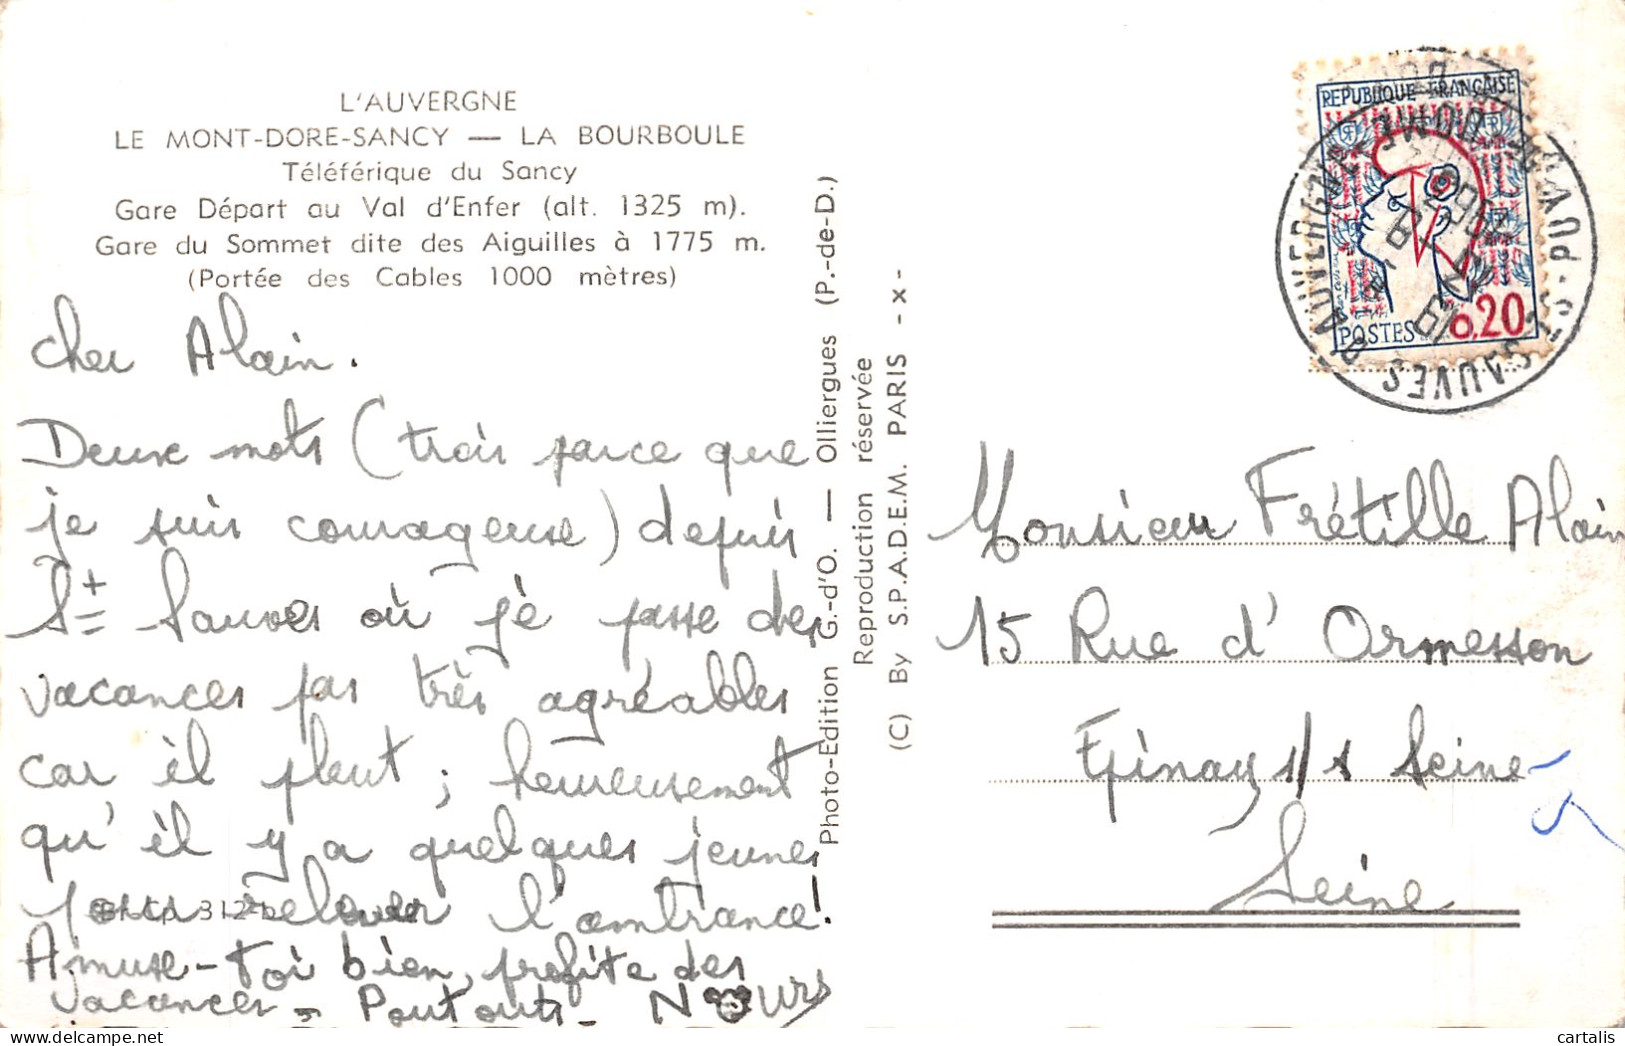 L'AUVERGNE
LE MONT-DORE-SANCY — LA BOURBOULE
Téléférique du Sancy
Gare Départ au Val d'Enfer (alt. 1325 m).
Gare du Sommet dite des Aiguilles à 1775 m.
(Portée des Cables 1000 mètres)
Cher Alain.
Deux mots (trois parce que
je suis courageuse) depuis
St Sauves où jè passe des
vacances pas très agréables
car il pleut ; heureusement
qu'il y a quelques jeunes
pour relever l'ambiance!
Amuse-toi bien, profite des
vacances -
Photo-Edition G.-d'O. — Olliergues (P.-de-D.)
Reproduction réservée
(C) By S.P.A.D.E.M. PARIS -x-
REPUBLIQUE FRANÇAISE
POSTES 0,20
ST-SAUVES D'AUVERGNE
PUY DE DOME
Monsieur Frétille Alain
15 Rue d'Ormesson
Epinay s/s Seine
Seine
cartalis
Delcampe.net